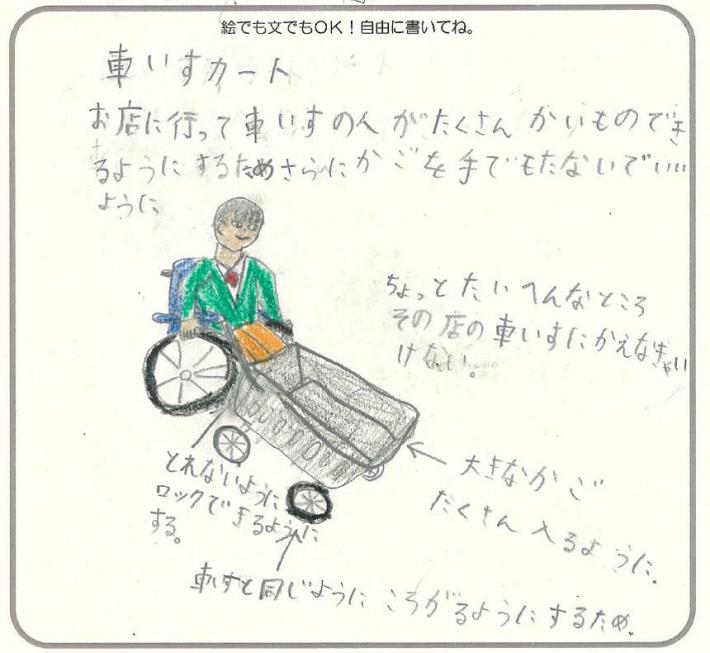 絵でも文でもOK！自由に書いてね。
車いすカート
お店に行って車いすの人がたくさんかいものでき
るようにするためさらにかごを手でもたないでいい
ように
ちょっとたいへんなところ
その店の車いすにかえなきゃい
けない。
大きなかご
たくさん入るように。
とれないように
ロックできるように
する。
車いすと同じようにころがるようにするため。